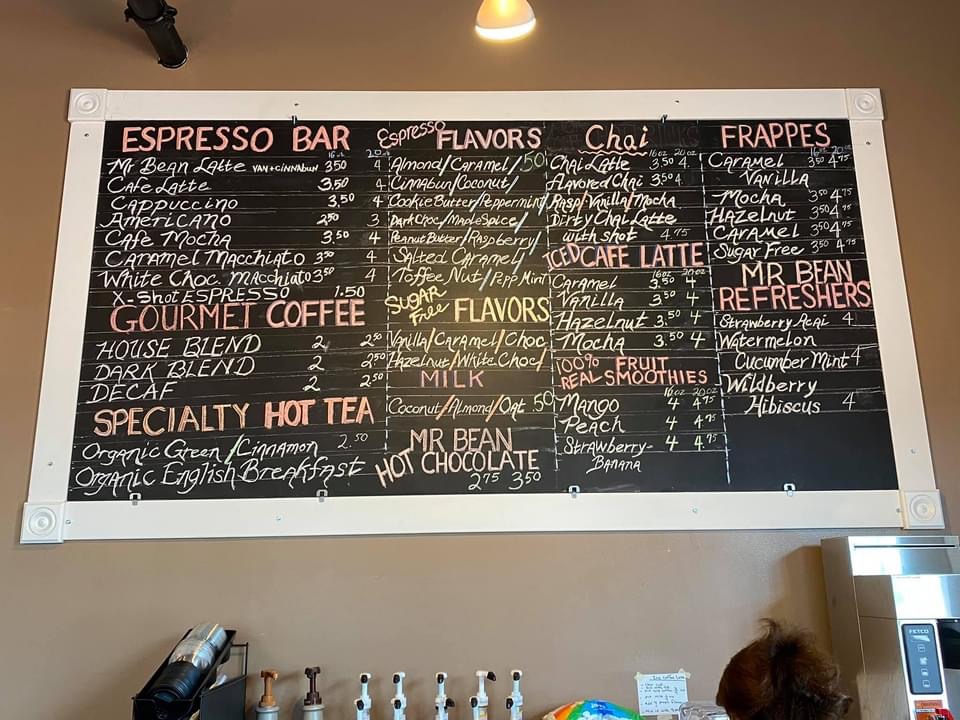 ESPRESSO BAR
16oz 20oz
Mr Bean Latte VAN+CINNABUN 3.50 4
Cafe Latte 3.50 4
Cappuccino 3.50 4
Americano 2.50 3
Cafe Mocha 3.50 4
Caramel Macchiato 3.50 4
White Choc. Macchiato 3.50 4
X-Shot ESPRESSO 1.50
GOURMET COFFEE
HOUSE BLEND 2 2.50
DARK BLEND 2 2.50
DECAF 2 2.50
SPECIALTY HOT TEA
Organic Green/Cinnamon 2.50
Organic English Breakfast
Espresso FLAVORS
Almond/Caramel/.50
Cinnabun/Coconut/
Cookie Butter/Peppermint/
Dark Choc/Maple Spice/
Peanut Butter/Raspberry/
Salted Caramel/
Toffee Nut/Pepp Mint
SUGAR Free FLAVORS
Vanilla/Caramel/Choc
Hazelnut/White Choc/
MILK
Coconut/Almond/Oat .50
MR BEAN
HOT CHOCOLATE
2.75 3.50
Chai
16oz 20oz
Chai Latte 3.50 4
Flavored Chai 3.50 4
Rasp/Vanilla/Mocha
Dirty Chai Latte
with shot 4.75
ICED CAFE LATTE
16oz 20oz
Caramel 3.50 4
Vanilla 3.50 4
Hazelnut 3.50 4
Mocha 3.50 4
100% FRUIT
REAL SMOOTHIES
16oz 20oz
Mango 4 4.75
Peach 4 4.75
Strawberry- 4 4.75
Banana
FRAPPES
16oz 20oz
Caramel 3.50 4.75
Vanilla
Mocha 3.50 4.75
Hazelnut 3.50 4.75
Caramel 3.50 4.75
Sugar Free 3.50 4.75
MR BEAN
REFRESHERS
Strawberry Acai 4
Watermelon
Cucumber Mint 4
Wildberry
Hibiscus 4
FETCO